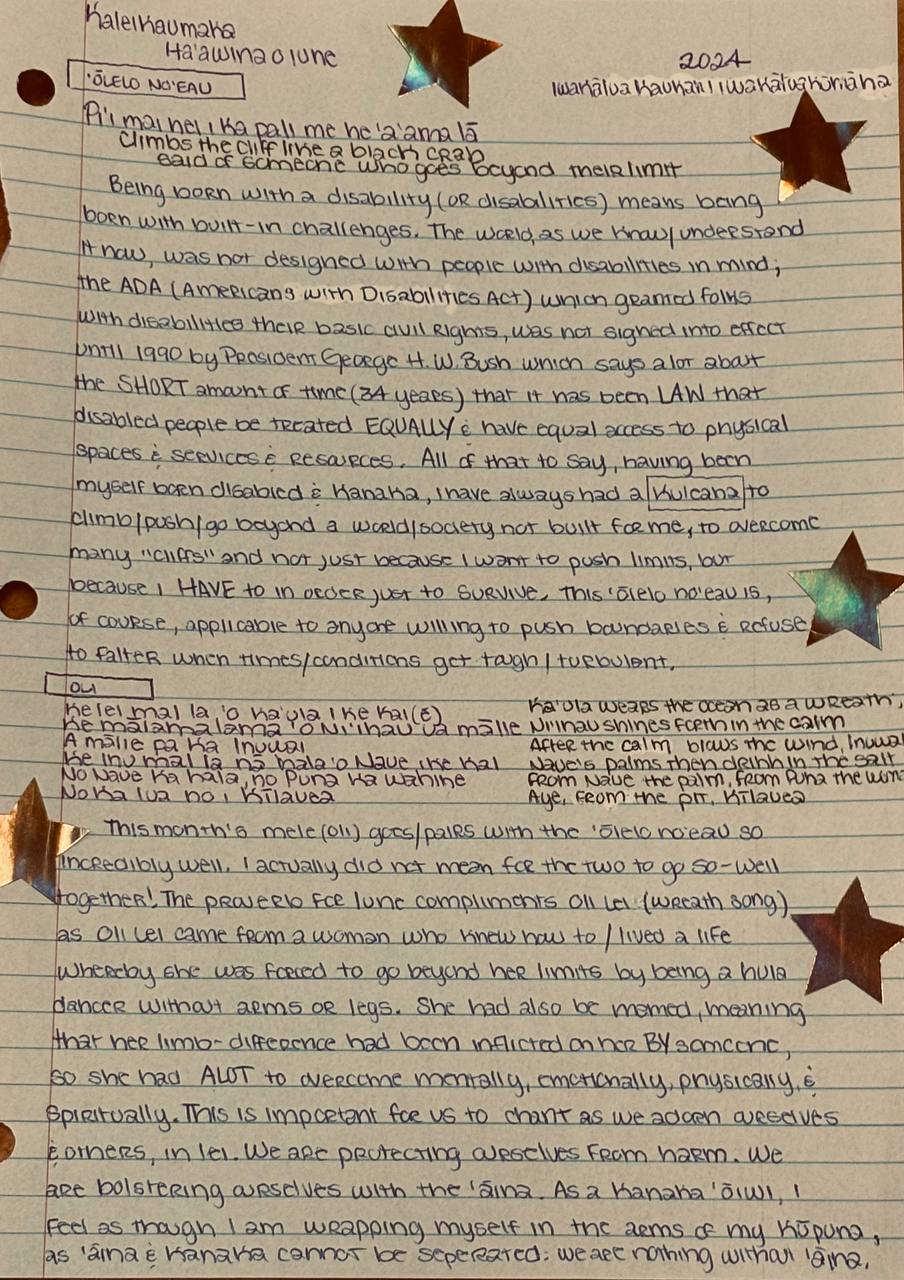 Kaleikaumaka
Ha'awina o Iune
2024
Iwakālua Kaukani Iwakāluakūmāhā
'ŌLELO NO'EAU
Pi'i mai nei i ka pali me he 'a'ama lā
Climbs the cliff like a black crab
said of someone who goes beyond their limit
Being born with a disability (OR disabilities) means being
born with built-in challenges. The world, as we know/understand
it now, was not designed with people with disabilities in mind;
the ADA (Americans with Disabilities Act) which granted folks
with disabilities their basic civil Rights, was not signed into effect
until 1990 by President George H.W. Bush which says a lot about
the SHORT amount of time (34 years) that it has been LAW that
disabled people be treated EQUALLY & have equal access to physical
spaces & services & resources. All of that to say, having been
myself born disabled & Kanaka, I have always had a Kuleana to
climb/push/go beyond a world/society not built for me, to overcome
many "cliffs" and not just because I want to push limits, but
because I HAVE to in order just to SURVIVE. This 'ōlelo no'eau is,
of course, applicable to anyone willing to push boundaries & refuse
to falter when times/conditions get tough/turbulent.
OLI
Ke lei mai la 'o Ka'ula i ke kai (ē)
Ke mālamalama 'o Ni'ihau ua mālie
A mālie pa ka Inuwai
Ke inu mai la nā hala 'o Naue i ke kai
No Naue ka hala, no Puna ka wahine
No ka lua no i Kīlauea
Ka'ula wears the ocean as a wreath,
Ni'ihau shines forth in the calm
After the calm blows the wind, Inuwai
Naue's palms then drink in the salt
From Naue the palm, from Puna the wom
Aye, from the pit, Kīlauea
This month's mele (oli) goes/pairs with the 'ōlelo no'eau so
incredibly well. I actually did not mean for the two to go so-well
together! The proverb for Iune compliments Oli Lei (wreath song)
as Oli Lei came from a woman who knew how to / lived a life
whereby she was forced to go beyond her limits by being a hula
dancer without arms or legs. She had also be momed, meaning
that her limb-difference had been inflicted on her BY someone,
so she had ALOT to overcome mentally, emotionally, physically, &
spiritually. This is important for us to chant as we adorn ourselves
& others, in lei. We are protecting ourselves from harm. We
are bolstering ourselves with the 'āina. As a Kanaka 'ōiwi, I
feel as though I am wrapping myself in the arms of my Kūpuna,
as 'āina & Kanaka cannot be seperated: we are nothing without 'āina.